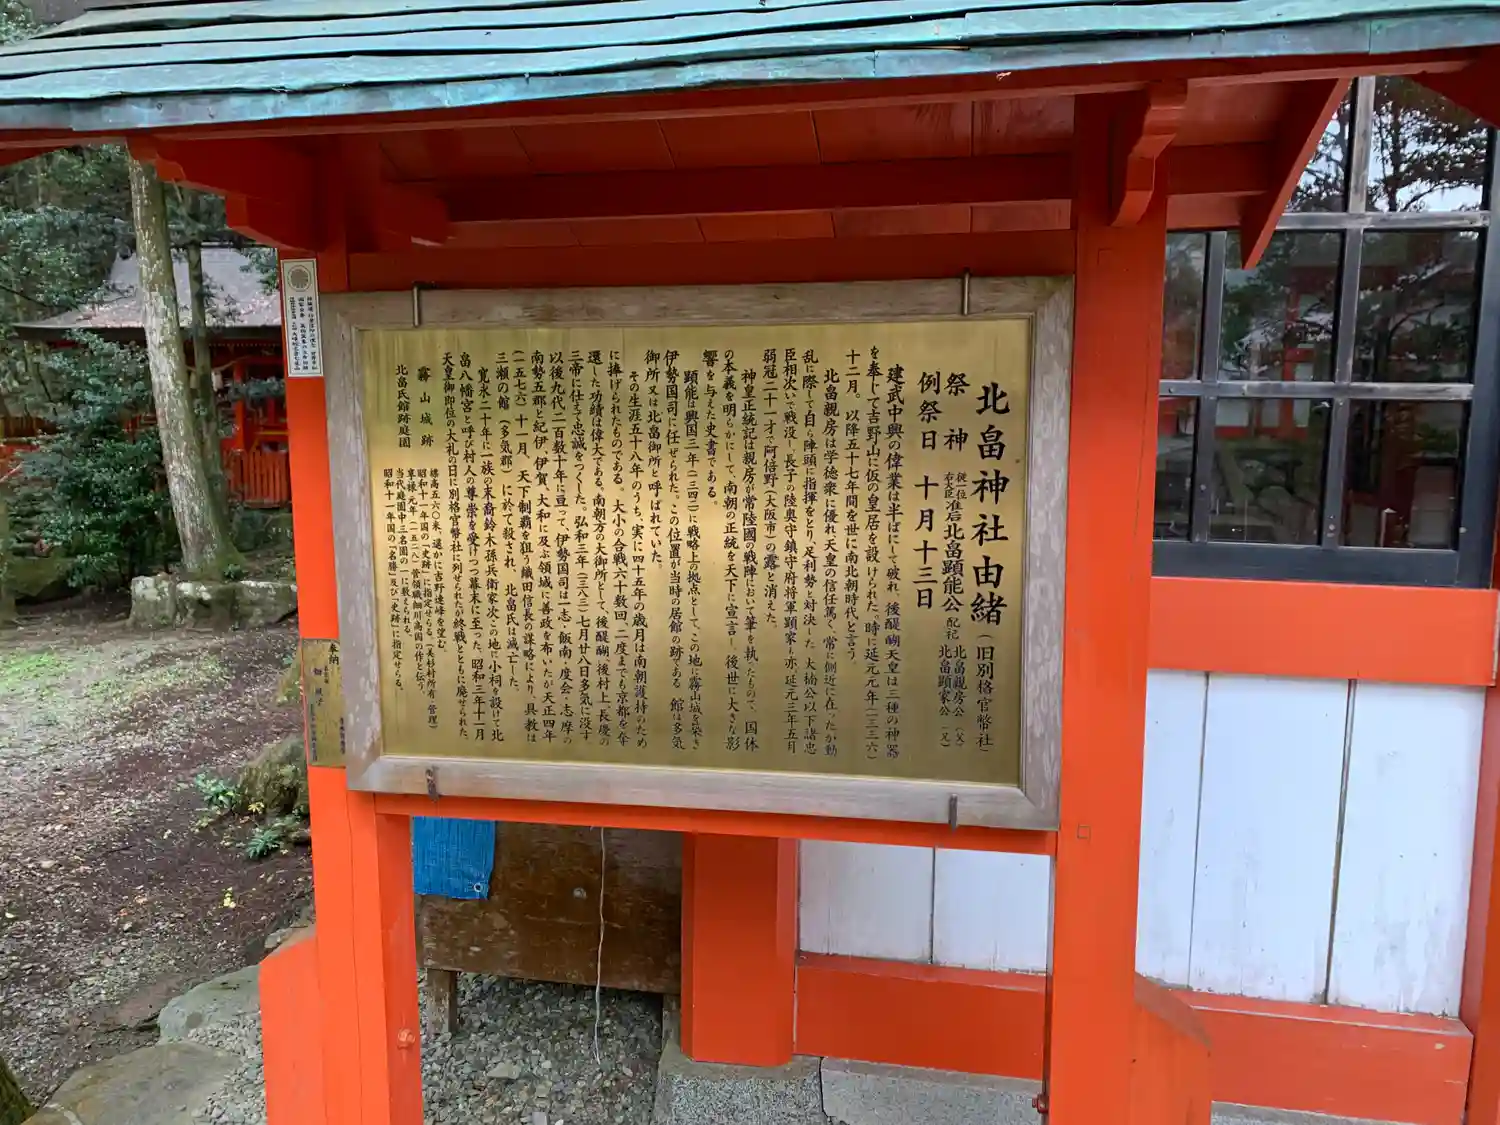 北畠神社由緒(旧別格官幣社)
祭神 従一位右大臣准后北畠顕能公 配祀 北畠親房公(父)
北畠顕家公(兄)
例祭日 十月十三日
建武中興の偉業は半ばにして破れ、後醍醐天皇は三種の神器
を奉じて吉野山に仮の皇居を設けられた。時に延元元年(一三三六)
十二月。以降五十七年間を世に南北朝時代と言う。
北畠親房は学徳衆に優れ天皇の信任篤く、常に側近に在ったが動
乱に際して自ら陣頭に指揮をとり、足利勢と対決した。大楠公以下諸忠
臣相次いで戦没し長子の陸奥守鎮守府将軍顕家も亦延元三年五月
弱冠二十一才で阿倍野(大阪市)の露と消えた。
神皇正統記は親房が常陸國の戦陣において筆を執ったもので、国体
の本義を明らかにして、南朝の正統を天下に宣言し、後世に大きな影
響を与えた史書である。
顕能は興国三年(一三四二)に戦略上の拠点として、この地に霧山城を築き
伊勢国司に任ぜられた。この位置が当時の居館の跡である 館は多気
御所又は北畠御所と呼ばれていた。
その生涯五十八年のうち、実に四十五年の歳月は南朝護持のため
に捧げられたものである。大小の合戦六十数回、二度までも京都を奪
還した功績は偉大である。南朝方の大御所として、後醍醐、後村上、長慶の
三帝に仕えて忠誠をつくした。弘和三年(一三八三)七月廿八日多気に没す
以後九代二百数十年に亘って、伊勢国司は一志・飯南・度会・志摩の
南勢五郡と紀伊、伊賀、大和に及ぶ領域に善政を布いたが天正四年
(一五七六)十一月、天下制覇を狙う織田信長の謀略により、具教は
三瀬の館(多気郡)に於て殺され、北畠氏は滅亡した。
寛永二十年に一族の末裔鈴木孫兵衛家次この地に小祠を設けて北
畠八幡宮と呼び村人の尊崇を受けつつ幕末に至った。昭和三年十一月
天皇御即位の大礼の日に別格官幣社に列せられたが終戦とともに廃せられた。
霧山城跡 標高五六〇米、遥かに吉野連峰を望む。
昭和十一年国の「史跡」に指定せらる。(美杉村所有・管理)
北畠氏館跡庭園 享禄元年(一五二八)管領職細川高国の作と伝う
当代庭園中三名園の一に数えられる。
昭和十一年国の「名勝」及び「史跡」に指定せらる。
奉納